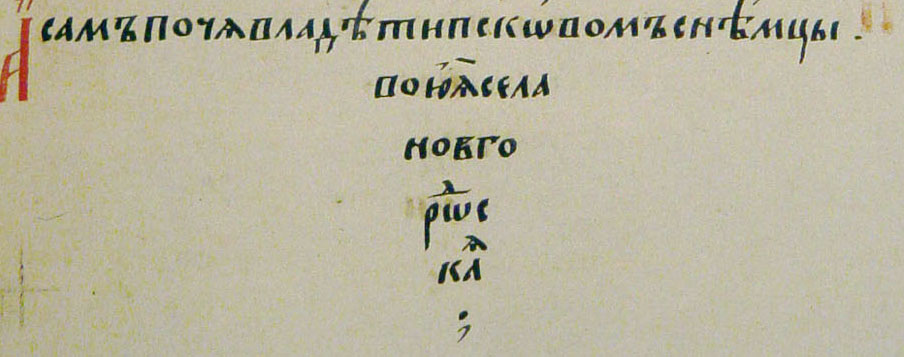 А҆ самъ почѧ владѣти пскѡвомъ с нѣмцы .
вою́ѧ села
новго
рѡⷣс
каⷽ
;